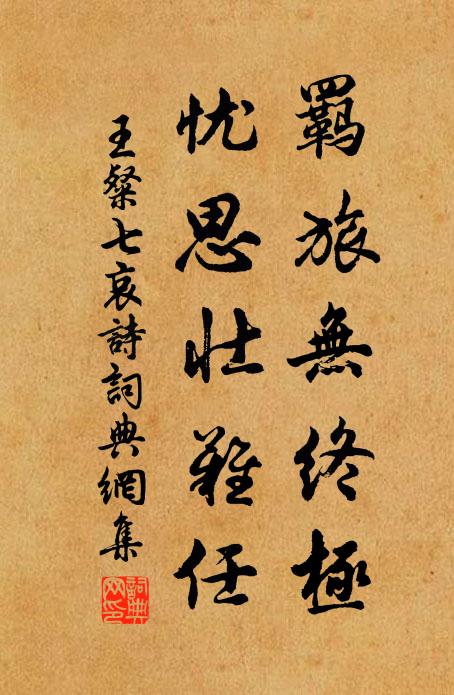 羈旅無終極
忧思壮難任
王粲七哀詩詞典網集
詞典
网印